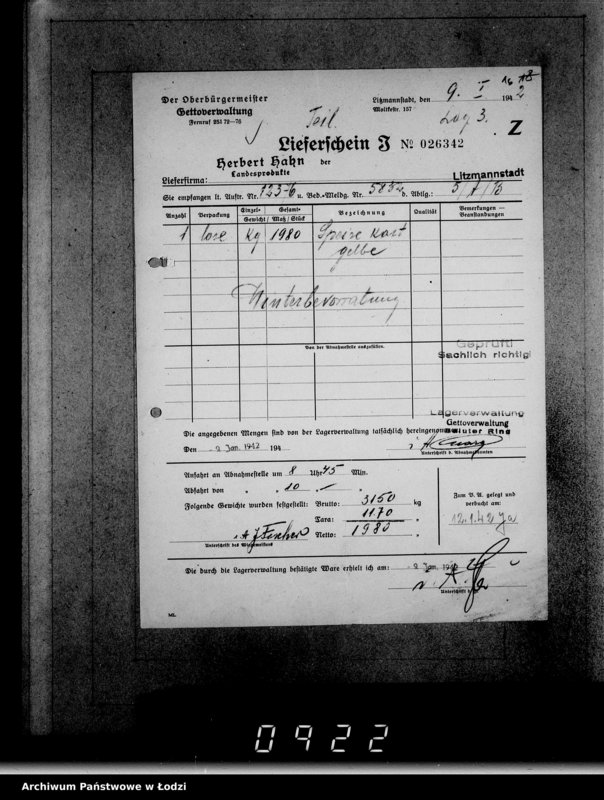 Der Oberbürgermeister
Gettoverwaltung
Fernruf 251 72—76
Litzmannstadt, den 9. I 1942
Moltkestr. 157
Teil. Lag 3.
Z
Lieferschein J № 026342
der
Herbert Hahn
Landesprodukte
Lieferfirma: Litzmannstadt
Sie empfangen lt. Auftr. Nr. 123-6 u. Bed.-Meldg. Nr. d. Abllg.:
Anzahl Verpackung Einzel- Gesamt- Bezeichnung Qualität Bemerkungen — Beanstandungen
Gewicht / Maß / Stück
1 lose Kg 1980 Speise Kart
gelbe
Winterbevorratung
Von der Abnahmestelle auszufüllen.
Geprüft!
Sachlich richtig!
Lagerverwaltung
Gettoverwaltung
Baluter Ring
Die angegebenen Mengen sind von der Lagerverwaltung tatsächlich hereingenommen
Den - 9. Jan. 1942 194
Unterschrift d. Abnahmebeamten
Anfahrt an Abnahmestelle um 8 Uhr 45 Min.
Abfahrt von " " 10 " — "
Folgende Gewichte wurden festgestellt: Brutto: 3150 kg
Tara: 1170 "
Netto: 1980 "
i. A. Fischer
Unterschrift des Wiegemeisters
Zum B. A. gelegt und
verbucht am:
12.1.42 Ja
Die durch die Lagerverwaltung bestätigte Ware erhielt ich am: - 9. Jan. 1942
i. A.
Unterschrift
ML
0922
Archiwum Państwowe w Łodzi